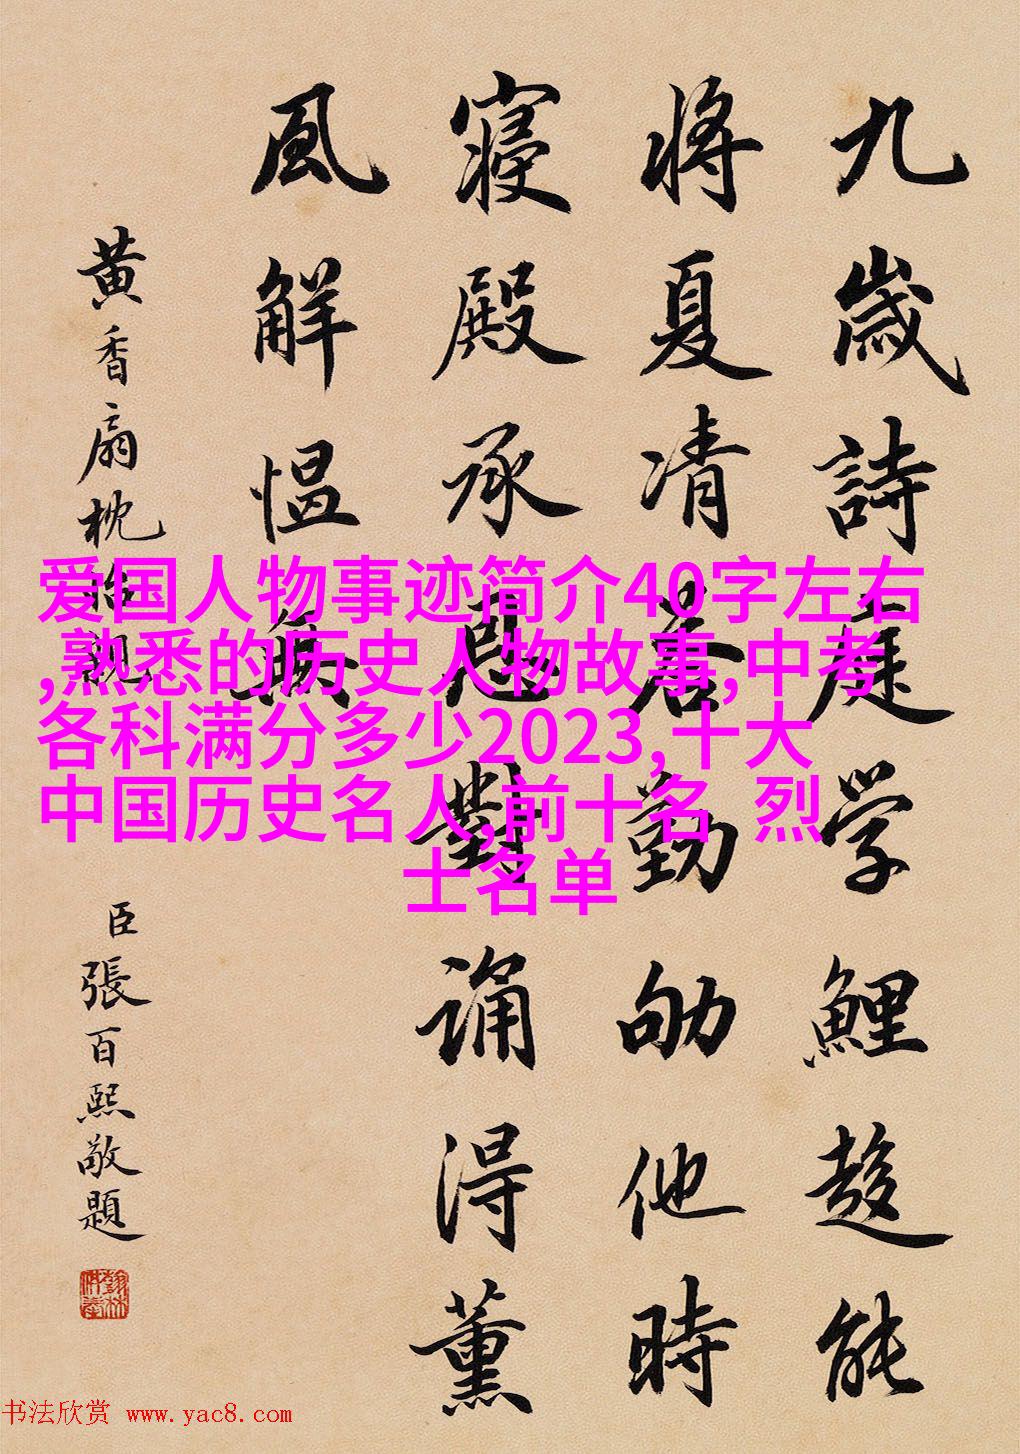 九歲詩庭学鯉趨能
將夏凊晷勤劬他時
寢殿承對誦得薰
風解愠無
黄香扇枕
臣張百熙敬題
爱国人物事迹简介40字左右
,熟悉的历史人物故事,中考
各科满分多少2023,十大
中国历史名人,前十名 烈
士名单
书法欣赏 www.yac8.com